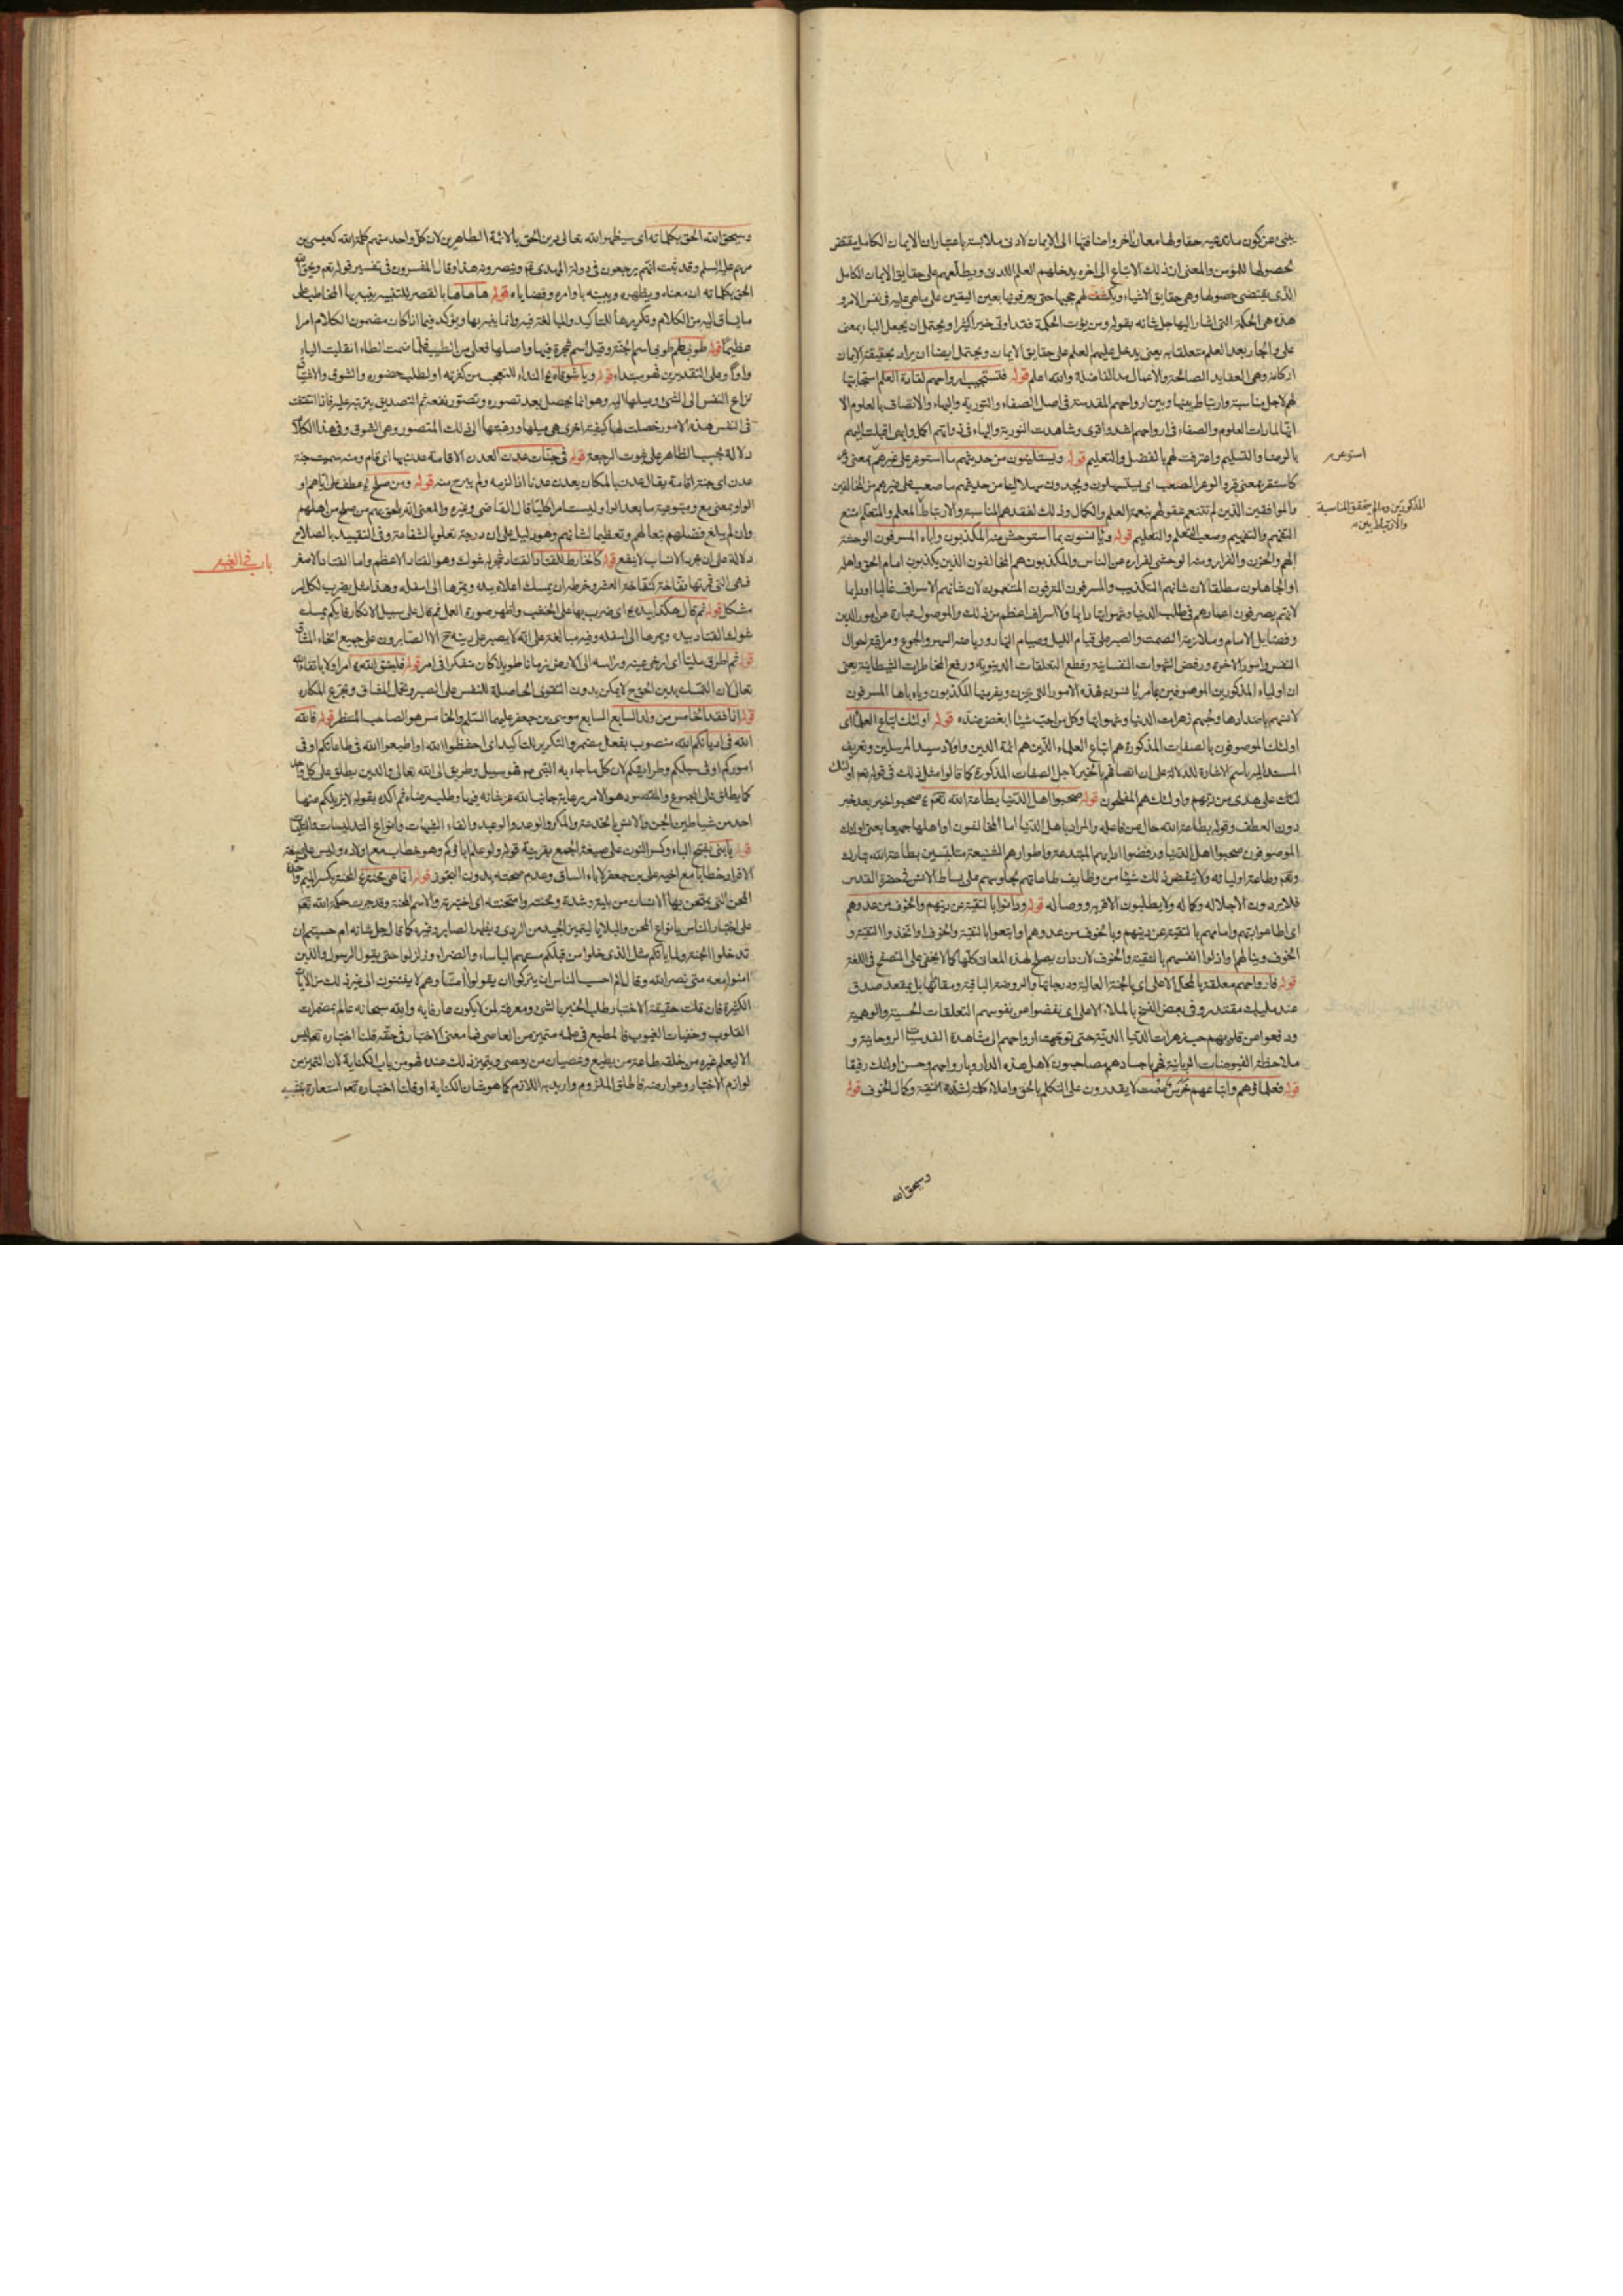 ينبئ عن كون ما تدعيه حقا ولها معان أخر واضافتها الى الايمان لادنى ملابسة باعتبار ان الايمان الكامل يقتضى
حصولها للمؤمن والمعنى ان ذلك الاتباع الى اخره يدخلهم العلم اللدنى ويطلعهم على حقايق الايمان الكامل
الذى يقتضى حصولها وهى حقايق الاشياء ويكشف لهم حجبها حتى يعرفونها بعين اليقين على ما هى عليه فى نفس الامر و
هذه هى الحكمة التى اشار اليها جل شانه بقوله ومن يؤت الحكمة فقد اوتى خيرا كثيرا ويحتمل ان يجعل الباء بمعنى
على والجار بعد العلم متعلقا به يعنى يدخل عليهم العلم على حقايق الايمان ويحتمل ايضا ان يراد بحقيقة الايمان
اركانه وهى العقايد الصالحة والاعمال الفاضلة والله اعلم قوله فتستجيب ارواحهم لقادة العلم استجابتها
لهم لاجل مناسبة وارتباط بينها وبين ارواحهم المقدسة فى اصل الصفاء والنورية والبهاء والاتصاف بالعلوم الا
انها لما رات العلوم والصفاء فى ارواحهم اشد واقوى وشاهدت النورية والبهاء فى ذواتهم اكمل وابهى اقبلت اليهم
بالرضا والتسليم واعترفت لهم بالفضل والتعليم قوله ويستلينون من حديثهم ما استوعر على غيرهم بمعنى وعر
كاستقر بمعنى قر والوعر الصعب اى يستسهلون ويجدون سهلا لينا من حديثهم ما صعب على غيرهم من المخالفين
والموافقين الذين لم تتنعم عقولهم بنعمة العلم والكمال وذلك لفقدهم المناسبة والارتباط المعلم والمتعلم امتنع
التفهم والتفهيم وصعب التعلم والتعليم قوله ويأنسون بما استوحش منه المكذبون واباه المسرفون الوحشة
الهم والحزن والفرار ومنه الوحشى لفراره عن الناس والمكذبون هم المخالفون الذين يكذبون امام الحق واهله
او الجاهلون مطلقا لان شانهم التكذيب والمسرفون المترفون المتنعمون لان شانهم الاسراف غالبا او دايما
لانهم يصرفون اعمارهم فى طلب الدنيا وشهواتها دايما ولا اسراف اعظم من ذلك والموصول عبارة عن امور الدين
وفضايل الامام وملازمة الصمت والصبر على قيام الليل وصيام النهار ورياضة السهر والجوع ومراقبة احوال
النفس وامور الاخرة ورفض الشهوات النفسانية وقطع التعلقات الدنيوية ورفع المخاطرات الشيطانية يعنى
ان اولياء المذكورين الموصوفين بما مر يأنسون بهذه الامور التى يحزن ويفر منها المكذبون ويأباها المسرفون
لانهم باضدادها وحبهم زهرات الدنيا وشهواتها وكل من احب شيئا ابغض ضده قوله اولئك اتباع العلماء اى
اولئك الموصوفون بالصفات المذكورة هم اتباع العلماء الذين هم ائمة الدين واولاد سيد المرسلين وتعريف
المسند اليه باسم الاشارة للدلالة على ان اتصافهم بالخبر لاجل الصفات المذكورة كما قالوا مثل ذلك فى قوله تعالى اولئك
على هدى من ربهم واولئك هم المفلحون قوله صحبوا اهل الدنيا بطاعة الله تعالى صحبوا خبر بعد خبر
دون العطف وقوله بطاعة الله حال من فاعله والمراد باهل الدنيا اما المخالفون او اهلها جميعا يعنى اولئك
الموصوفون صحبوا اهل الدنيا ورفضوا ادابهم المبتدعة واطوارهم الشنيعة متلبسين بطاعة الله تبارك
وتعالى وطاعة اوليائه ولا ينقص ذلك شيئا من وظايف طاعاتهم لجلوسهم على بساط الانس فى حضرة القدس
فلا يريدون الا جلاله وكماله ولا يطلبون الا قربه ووصاله قوله ودانوا بالتقية عن دينهم والخوف من عدوهم
اى اطاعوا ربهم وامامهم بالتقية عن دينهم وبالخوف من عدوهم او اتبعوا بالتقية والخوف او اتخذوا التقية و
الخوف دينا لهم واذلوا انفسهم بالتقية والخوف لان دان يصلح لهذه المعان كلها كما لا يخفى على المتصفح فى اللغة
قوله فارواحهم معلقة بالمحل الاعلى اى بالجنة العالية ودرجاتها والروضة الباقية ومقاماتها بل بمقعد صدق
عند مليك مقتدر وفى بعض النسخ بالملاء الاعلى اى نفضوا عن نفوسهم التعلقات الحسية والوهمية
ودفعوا عن قلوبهم حب زهرات الدنيا الدنية حتى توجهت ارواحهم الى مشاهدة القدسيات الروحانية و
ملاحظة الفيوضات الربانية فهم باجسادهم مصاحبون لاهل هذه الدار وبارواحهم وحسن اولئك رفيقا
قوله فعلماؤهم واتباعهم خرس صمت لا يقدرون على التكلم بالحق واعلاء كلمته لشدة التقية وكمال الخوف قوله
استوعر
المذكورين وما لم يتحقق المناسبة
والارتباط بين
وسيحق الله
وسيحق الله الحق بكلماته اى سيظهر الله تعالى دين الحق بالائمة الطاهرين لان كل واحد منهم كلمة الله كعيسى بن
مريم عليه السلم وقد ثبت انهم يرجعون فى دولة المهدى وينصرونه هذا وقال المفسرون فى تفسير قوله تعالى ويحق الله
الحق بكلماته ان معناه ويظهره ويبينه باوامره وقضاياه قوله هاهاها بالقصر للتنبيه ينبه بها المخاطب على
ما يساق اليه من الكلام وتكريرها للتاكيد والمبالغة فيه وانما ينبه بها ويؤكد فيما اذا كان مضمون الكلام امرا
عظيما قوله طوبى لهم طوبى اسم الجنة وقيل اسم شجرة فيها واصلها فعلى من الطيب فلما ضمت الطاء انقلبت الياء
واوا وعلى التقديرين فهو مبتداء قوله ويا شوقاه النداء للتعجب من كثرته او لطلب حضوره والشوق والاشتياق
نزاع النفس الى الشئ وميلها اليه وهو انما يحصل بعد تصوره وتصور نفعه ثم التصديق بترتبه عليه فاذا تحققت
فى النفس هذه الامور حصلت لها كيفية اخرى هى ميلها ورغبتها الى ذلك المتصور وهى الشوق وفى هذا الكلام
دلالة بحسب الظاهر على ثبوت الرجعة قوله فى جنات عدن العدن الاقامة عدن بها اى قام ومنه سميت جنة
عدن اى جنة اقامة يقال عدن بالمكان يعدن عدنا اذا لزمه ولم يبرح منه قوله ومن صلح عطف على اياهم او
الواو بمعنى مع ومتبوعية ما بعد الواو ليست امرا كليا قال القاضى وغيره والمعنى انه يلحق بهم من صلح من اهلهم
وان لم يبلغ فضلهم تبعا لهم وتعظيما لشانهم وهو دليل على ان درجة تعلو بالشفاعة وفى التقييد بالصلاح
دلالة على ان مجرد الانساب لا ينفع قوله كالخارط للقتاد القتاد شجر له شوك وهو القتاد الاعظم واما القتاد الاصغر
فهى التى ثمرتها نفاخة كنفاخة العشر وخرطه ان يمسك اعلاه بيده ويمرها الى اسفله وهذا مثل يضرب لكل امر
مشكل قوله ثم قال هكذا بيده اى ضرب بها على الخشب واظهر صورة العمل ثم قال على سبيل الانكار فايكم يمسك
شوك القتاد بيده ويمرها الى اسفله وفيه مبالغة على انه لا يصبر على دينه ح الا الصابرون على جميع انحاء المشاق
قوله ثم اطرق مليا اى ارخى عينيه وراسه الى الارض زمانا طويلا كان متفكرا فى امر قوله فليتق الله امر اولا باتقاء الله
تعالى لان التمسك بدين الحق ح لا يمكن بدون التقوى الحاصلة للنفس على الصبر وتحمل المشاق وتجرع المكاره
قوله اذا فقد الخامس من ولد السابع السابع موسى بن جعفر عليهما السلم والخامس هو الصاحب المنتظر قوله فالله
الله فى اديانكم الله منصوب بفعل مضمر والتكرير للتاكيد اى احفظوا الله او اطيعوا الله فى طاعاتكم او فى
اموركم او فى سبلكم وطرائقكم لان كل ما جاء به النبى فهو سبيل وطريق الى الله تعالى والدين يطلق على كل واحد
كما يطلق على المجموع والمقصود هو الامر برعاية جانب الله عز شانه فيها وطلب رضاه ثم اكده بقوله لا يزيلكم عنها
احد من شياطين الجن والانس بالخدعة والمكر والوعد والوعيد والقاء الشبهات وانواع التدليسات والتلبيسات
قوله يا بنى بفتح الباء وكسر النون على صيغة الجمع بقرينة قوله ولو علم اباؤكم وهو خطاب مع اولاده وليس على صيغة
الافراد خطابا مع اخيه على بن جعفر لاباء السياق وعدم صحته بدون التجوز قوله انما هى محنة المحنة بكسر الميم واحدة
المحن التى يمتحن بها الانسان من بلية وشدة ومحنته وامتحنته اى اختبرته والاسم المحنة وقد جرت حكمة الله تعالى
على اختبار الناس بانواع المحن والبلايا ليتميز الجيد من الردى ويظهر الصابر وغيره كما قال جل شانه ام حسبتم ان
تدخلوا الجنة ولما ياتكم مثل الذين خلوا من قبلكم مستهم الباساء والضراء وزلزلوا حتى يقول الرسول والذين
امنوا معه متى نصر الله وقال الم احسب الناس ان يتركوا ان يقولوا امنا وهم لا يفتنون الى غير ذلك من الايات
الكثيرة فان قلت حقيقة الاختبار طلب الخبر بالشئ ومعرفته لمن لا يكون عارفا به والله سبحانه عالم بمضمرات
القلوب وخفيات الغيوب فالمطيع فى علمه متميز من العاصى فما معنى الاختبار فى حقه قلنا اختباره تعالى ليس
الا ليعلم غيره من خلقه طاعة من يطيع وعصيان من يعصى ويتميز ذلك عنده فهو من باب الكناية لان التميز من
لوازم الاختبار وعوارضه فاطلق الملزوم واريد به اللازم كما هو شان الكناية او قلنا اختباره تعالى استعارة بتشبيه
باب فى الغيبة